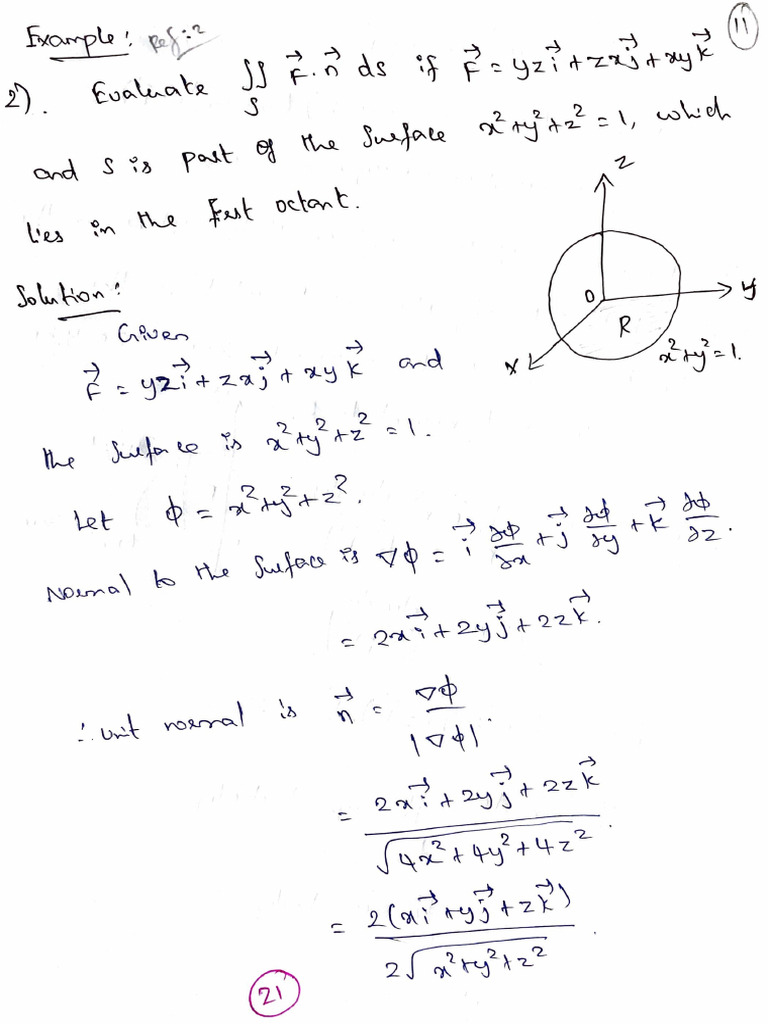 Example: Ref:2
11
2). Evaluate ∬_S F⃗·n⃗ ds if F⃗ = yzi⃗ + zxj⃗ + xyk⃗
and S is part of the Surface x²+y²+z² = 1, which
lies in the First octant.
Z
y
x
O
R
x²+y²=1.
Solution:
Given
F⃗ = yzi⃗ + zxj⃗ + xyk⃗ and
the Surface is x²+y²+z² = 1.
Let ϕ = x²+y²+z².
Normal to the Surface is ∇ϕ = i⃗ ∂ϕ/∂x + j⃗ ∂ϕ/∂y + k⃗ ∂ϕ/∂z.
= 2xi⃗ + 2yj⃗ + 2zk⃗.
∴ unit normal is n⃗ = ∇ϕ/|∇ϕ|.
= (2xi⃗ + 2yj⃗ + 2zk⃗)/√(4x²+4y²+4z²).
= 2(xi⃗ + yj⃗ + zk⃗)/2√(x²+y²+z²).
21